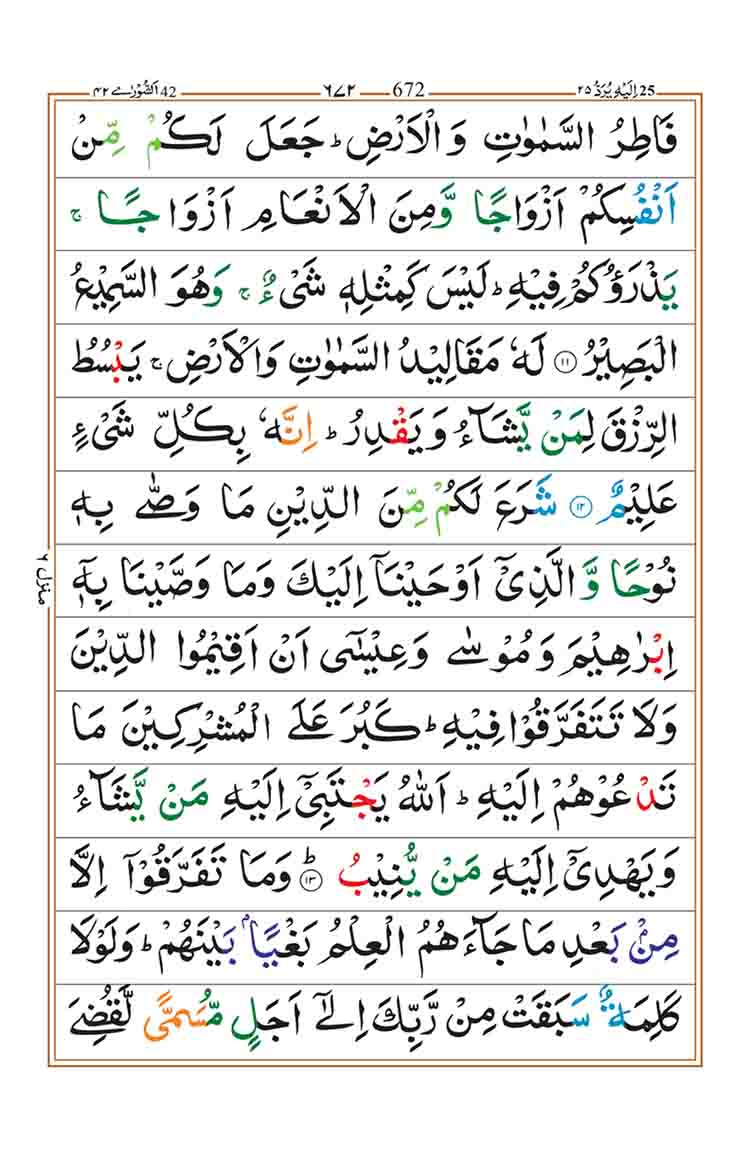 25 اِلَيْهِ يُرَدُّ ٢٥ 672 ٦٧٢ 42 اَلشُّوْرٰى ٤٢
فَاطِرُ السَّمٰوٰتِ وَ الْاَرْضِ ؕ جَعَلَ لَكُمْ مِّنْ
اَنْفُسِكُمْ اَزْوَاجًا وَّ مِنَ الْاَنْعَامِ اَزْوَاجًا ۚ
يَذْرَؤُكُمْ فِيْهِ ؕ لَيْسَ كَمِثْلِهٖ شَیْءٌ ۚ وَهُوَ السَّمِيْعُ
الْبَصِيْرُ ۝١١ لَهٗ مَقَالِيْدُ السَّمٰوٰتِ وَالْاَرْضِ ۚ يَبْسُطُ
الرِّزْقَ لِمَنْ يَّشَآءُ وَ يَقْدِرُ ؕ اِنَّهٗ بِكُلِّ شَیْءٍ
عَلِيْمٌ ۝١٢ شَرَعَ لَكُمْ مِّنَ الدِّيْنِ مَا وَصّٰى بِهٖ
نُوْحًا وَّ الَّذِیْۤ اَوْحَيْنَاۤ اِلَيْكَ وَمَا وَصَّيْنَا بِهٖۤ
اِبْرٰهِيْمَ وَ مُوْسٰى وَعِيْسٰۤى اَنْ اَقِيْمُوا الدِّيْنَ
وَلَا تَتَفَرَّقُوْا فِيْهِ ؕ كَبُرَ عَلَى الْمُشْرِكِيْنَ مَا
تَدْعُوْهُمْ اِلَيْهِ ؕ اَللّٰهُ يَجْتَبِیْۤ اِلَيْهِ مَنْ يَّشَآءُ
وَيَهْدِیْۤ اِلَيْهِ مَنْ يُّنِيْبُ ؕ۝١٣ وَمَا تَفَرَّقُوْۤا اِلَّا
مِنْۢ بَعْدِ مَا جَآءَهُمُ الْعِلْمُ بَغْيًاۢ بَيْنَهُمْ ؕ وَلَوْلَا
كَلِمَةٌ سَبَقَتْ مِنْ رَّبِّكَ اِلٰۤى اَجَلٍ مُّسَمًّى لَّقُضِیَ
منزل ٦